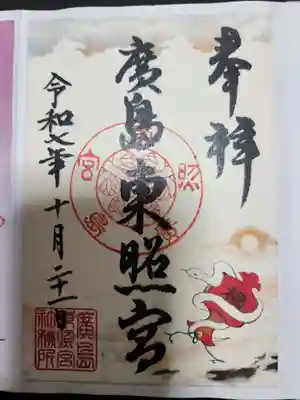 奉拝
廣島東照宮
令和七年十月二十一日
廣島
東照宮
社務所